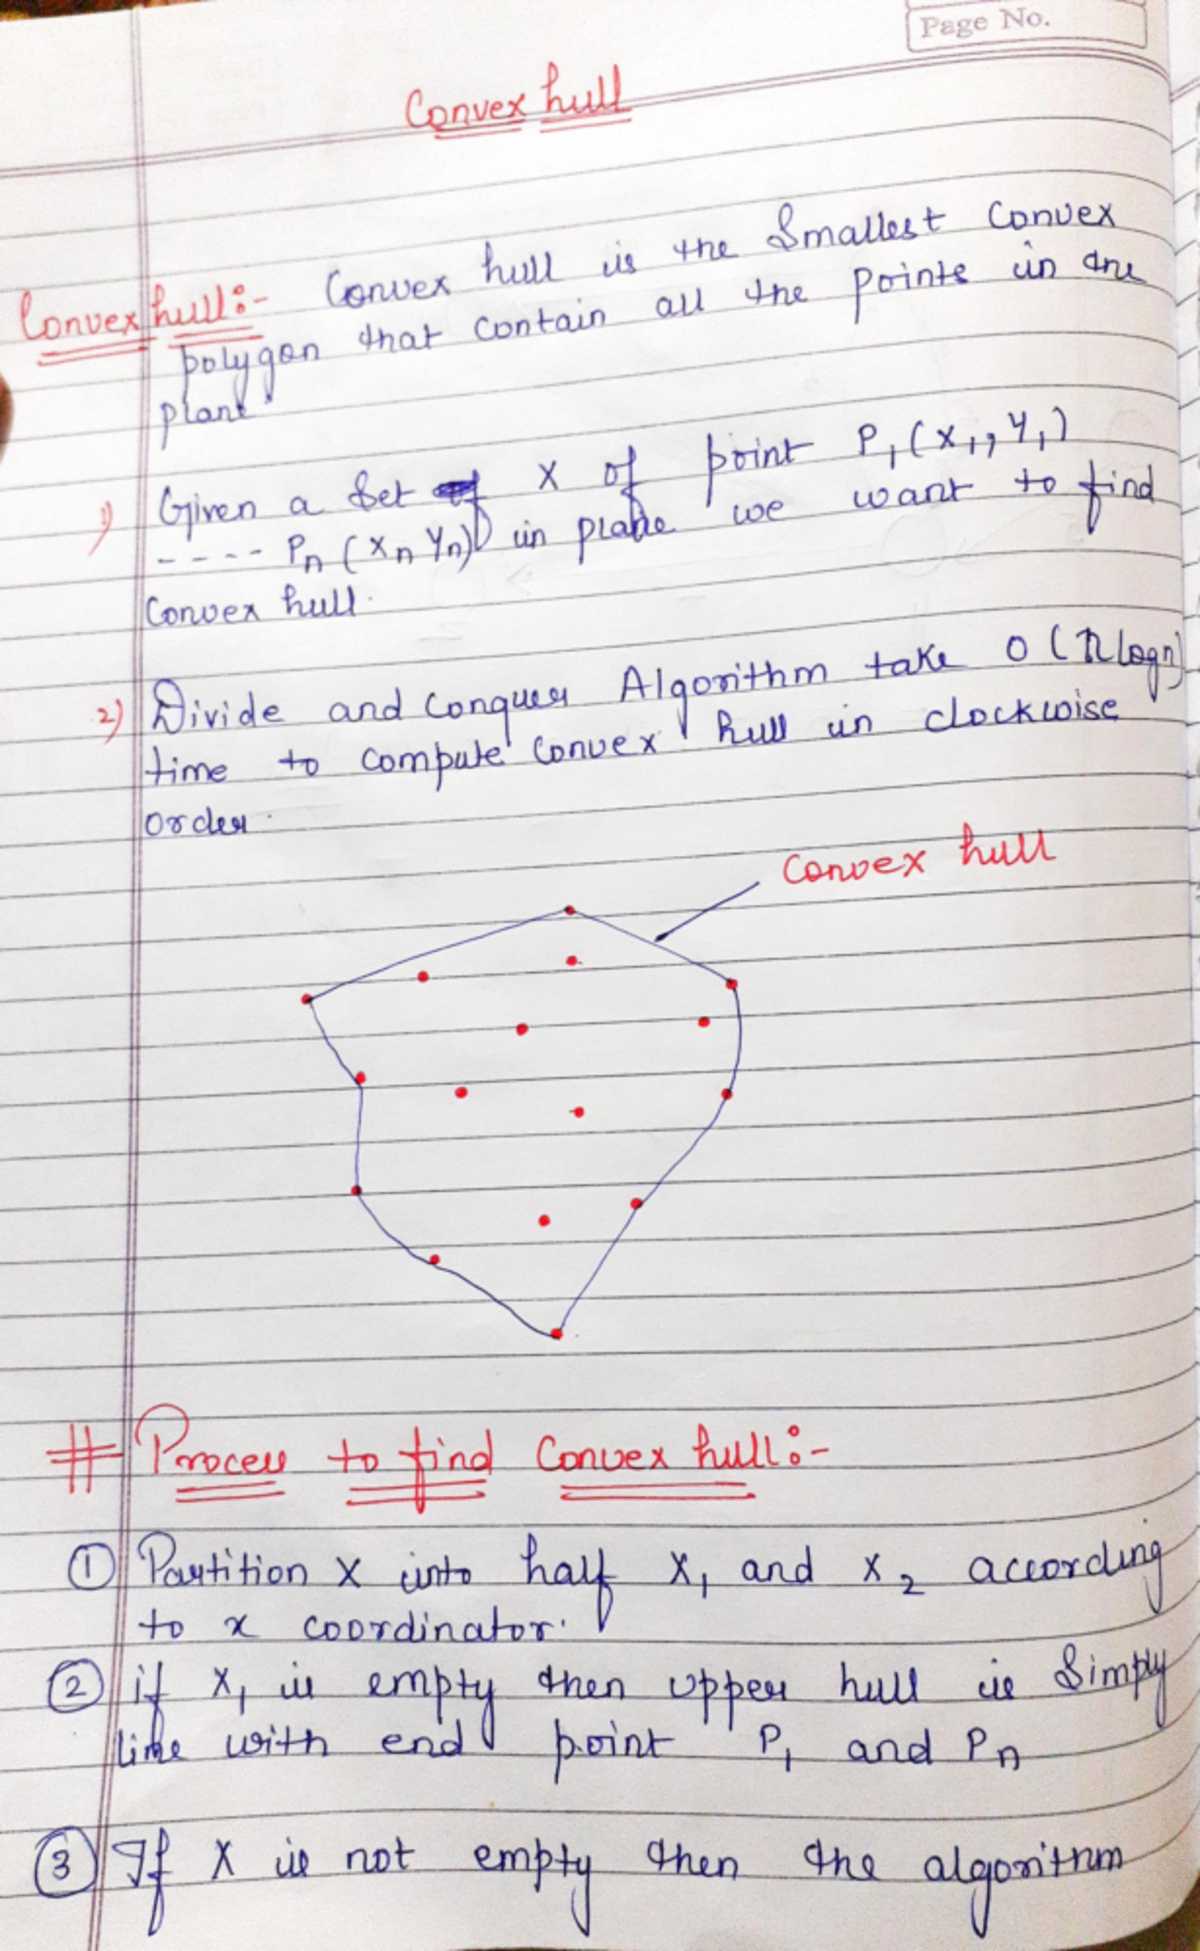 Page No.
Convex hull
Convex hull:- Convex hull is the Smallest Convex
polygon that contain all the points in the
plane
1) Given a Set X of point P1 (X1, Y1)
---- Pn (Xn Yn) in plane we want to find
Convex hull.
2) Divide and Conquer Algorithm take O (nlogn)
time to compute Convex hull in clockwise
order.
Convex hull
# Process to find Convex hull:-
① Partition X into half X1 and X2 according
to x coordinator.
② if X1 is empty then upper hull is Simply
line with end point P1 and Pn
③ If X is not empty then the algorithm